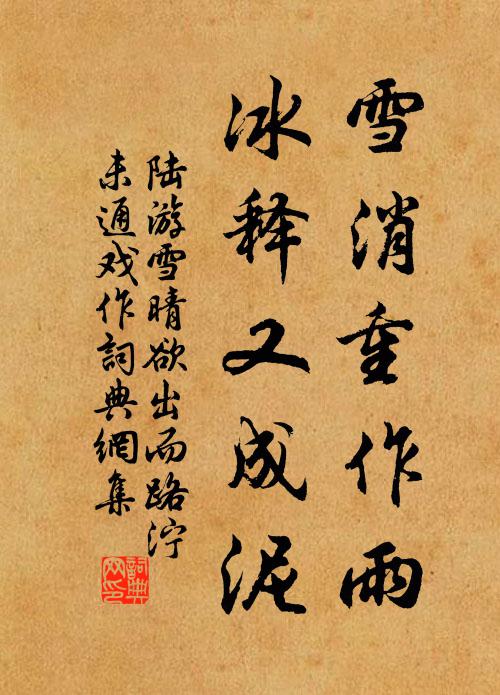 雪消重作雨
冰释又成泥
陆游雪晴欲出而路泞
未通戏作詞典網集
詞典
网印